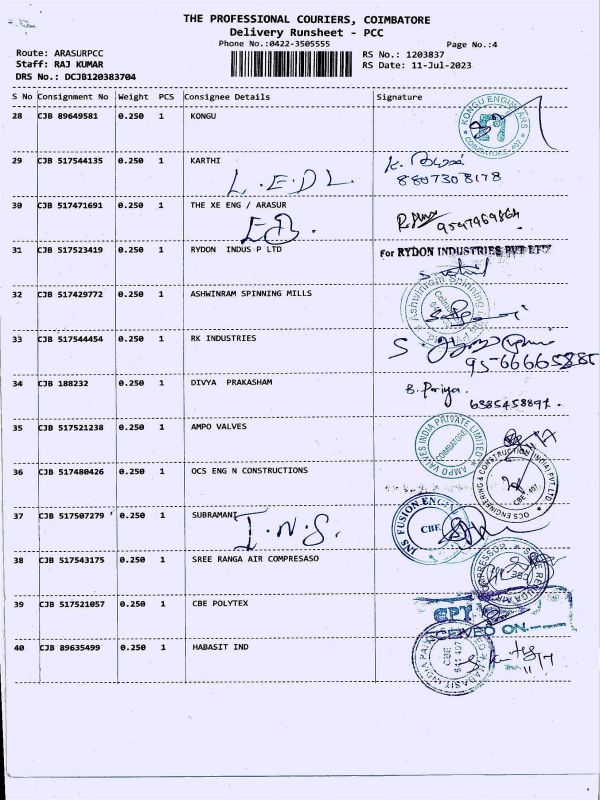 THE PROFESSIONAL COURIERS, COIMBATORE
Delivery Runsheet - PCC
Phone No.:0422-3505555
Page No.:4
Route: ARASURPCC
RS No.: 1203837
Staff: RAJ KUMAR
RS Date: 11-Jul-2023
DRS No.: DCJB120383704
S No Consignment No Weight PCS Consignee Details Signature
28 CJB 89649581 0.250 1 KONGU
KONGU ENGINEERS
COIMBATORE - 407
29 CJB 517544135 0.250 1 KARTHI
L.E.D L.
K.
8807308178
30 CJB 517471691 0.250 1 THE XE ENG / ARASUR
31 CJB 517523419 0.250 1 RYDON INDUS P LTD
For RYDON INDUSTRIES PVT LTD
32 CJB 517429772 0.250 1 ASHWINRAM SPINNING MILLS
Ashwinram Spinning
33 CJB 517544454 0.250 1 RK INDUSTRIES
S.
9566665885
34 CJB 188232 0.250 1 DIVYA PRAKASHAM
B. Priya.
6385458897.
35 CJB 517521238 0.250 1 AMPO VALVES
AMPO VALVES INDIA PRIVATE LIMITED
COIMBATORE
36 CJB 517480426 0.250 1 OCS ENG N CONSTRUCTIONS
OCS ENGINEERING & CONSTRUCTION (INDIA) PVT. LTD
CBE - 407
37 CJB 517507279 0.250 1 SUBRAMANI
I.N.S.
INS FUSION ENGG
CBE
38 CJB 517543175 0.250 1 SREE RANGA AIR COMPRESASO
39 CJB 517521057 0.250 1 CBE POLYTEX
CPT
RECEIVED ON
40 CJB 89635499 0.250 1 HABASIT IND
HABASIT INDIA
CBE
641 407
11/7